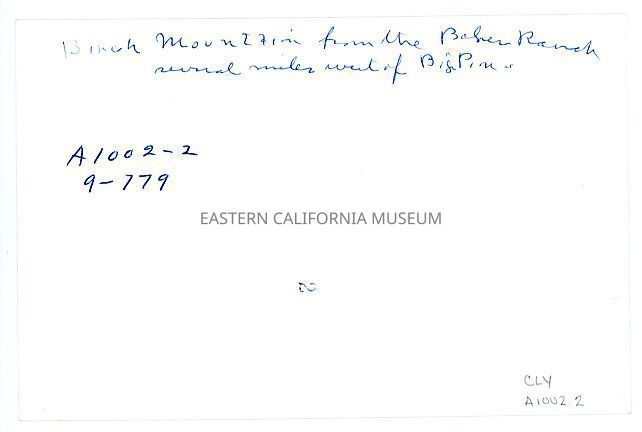 Birch Mountain from the Baker Ranch
several miles west of Big Pine.
A1002-2
9-779
EASTERN CALIFORNIA MUSEUM
CLY
A1002.2